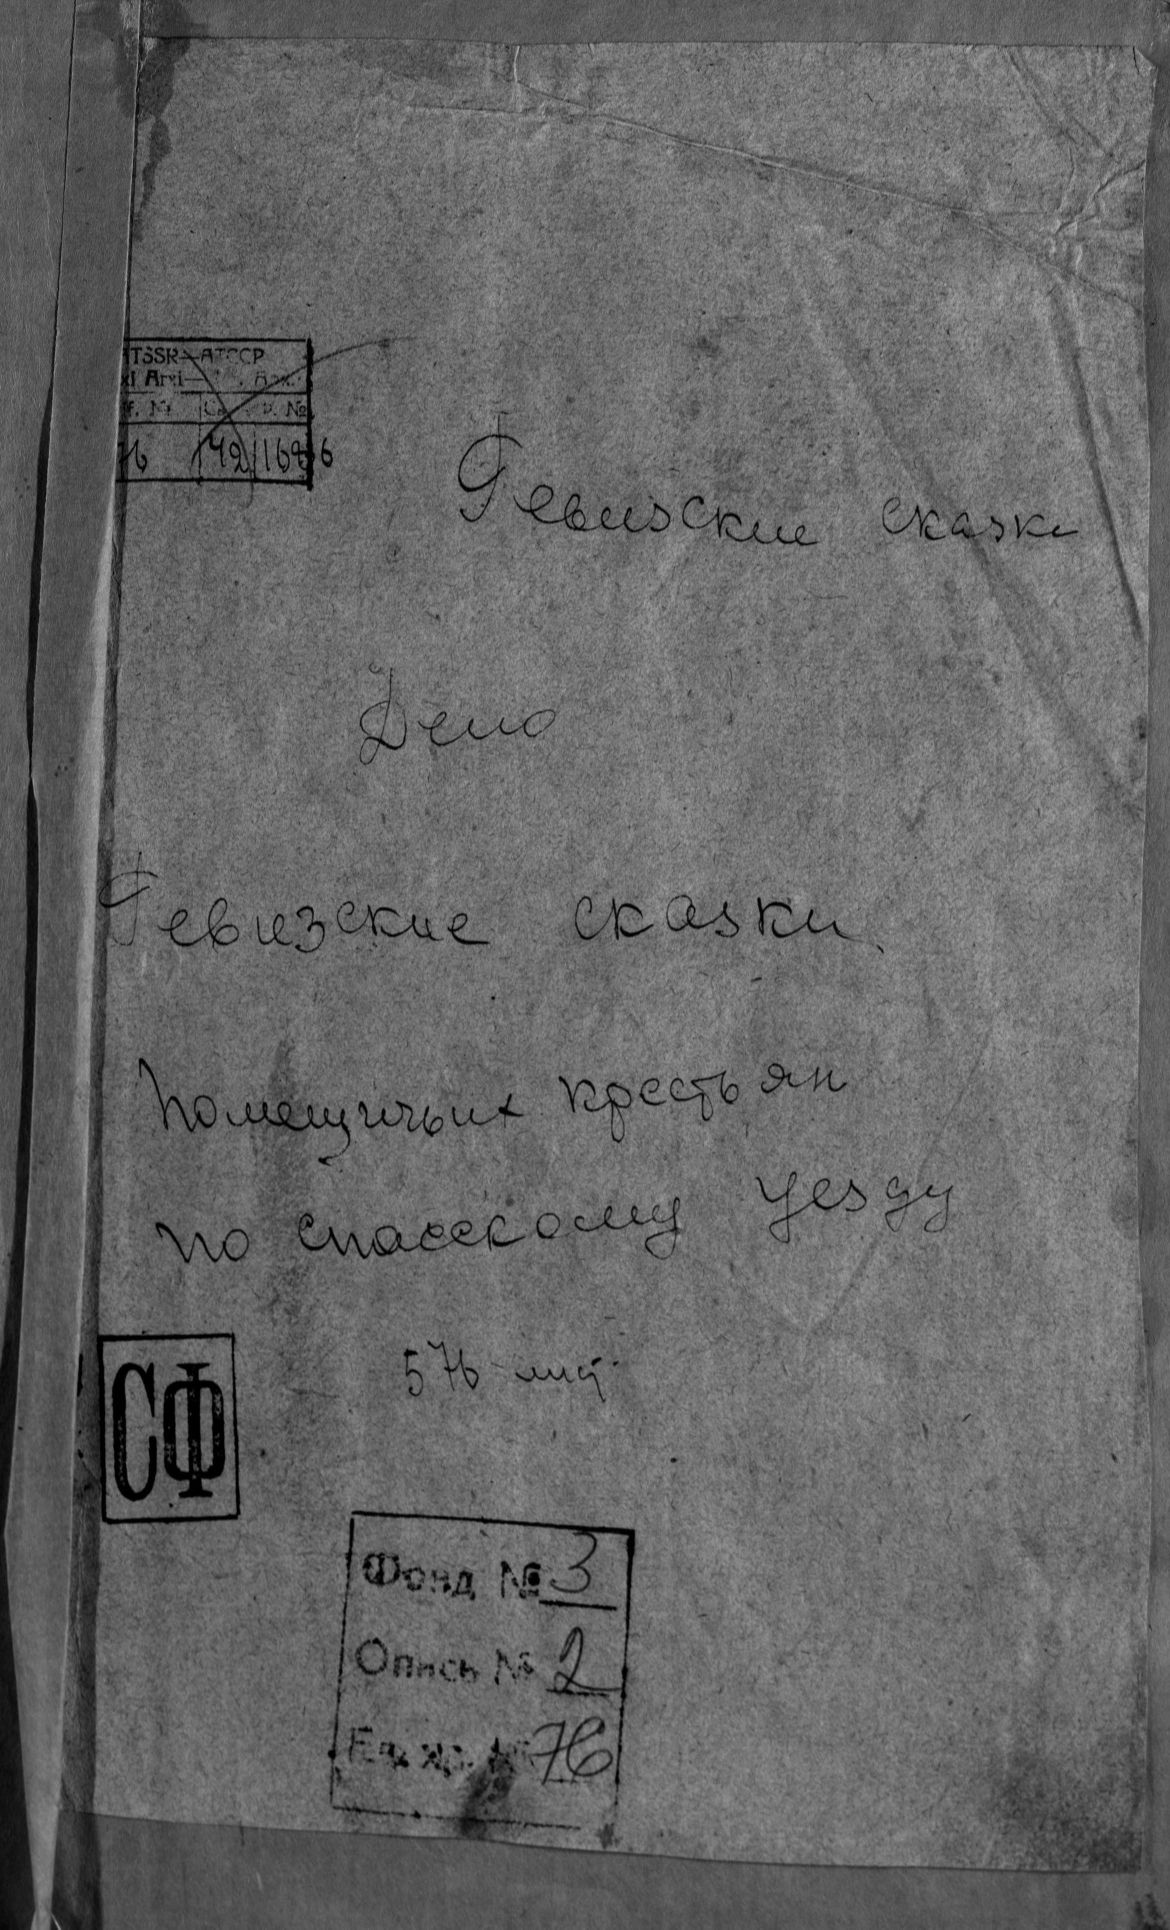 TSSR—АТССР
xi Arxi— Арх.
f. № №
76 42 1686
Ревизские сказки
Дело
Ревизские сказки
помещичьих крестьян
по спасскому уезду
576 лист.
СФ
Фонд № 3
Опись № 2
Ед. хр. № 76